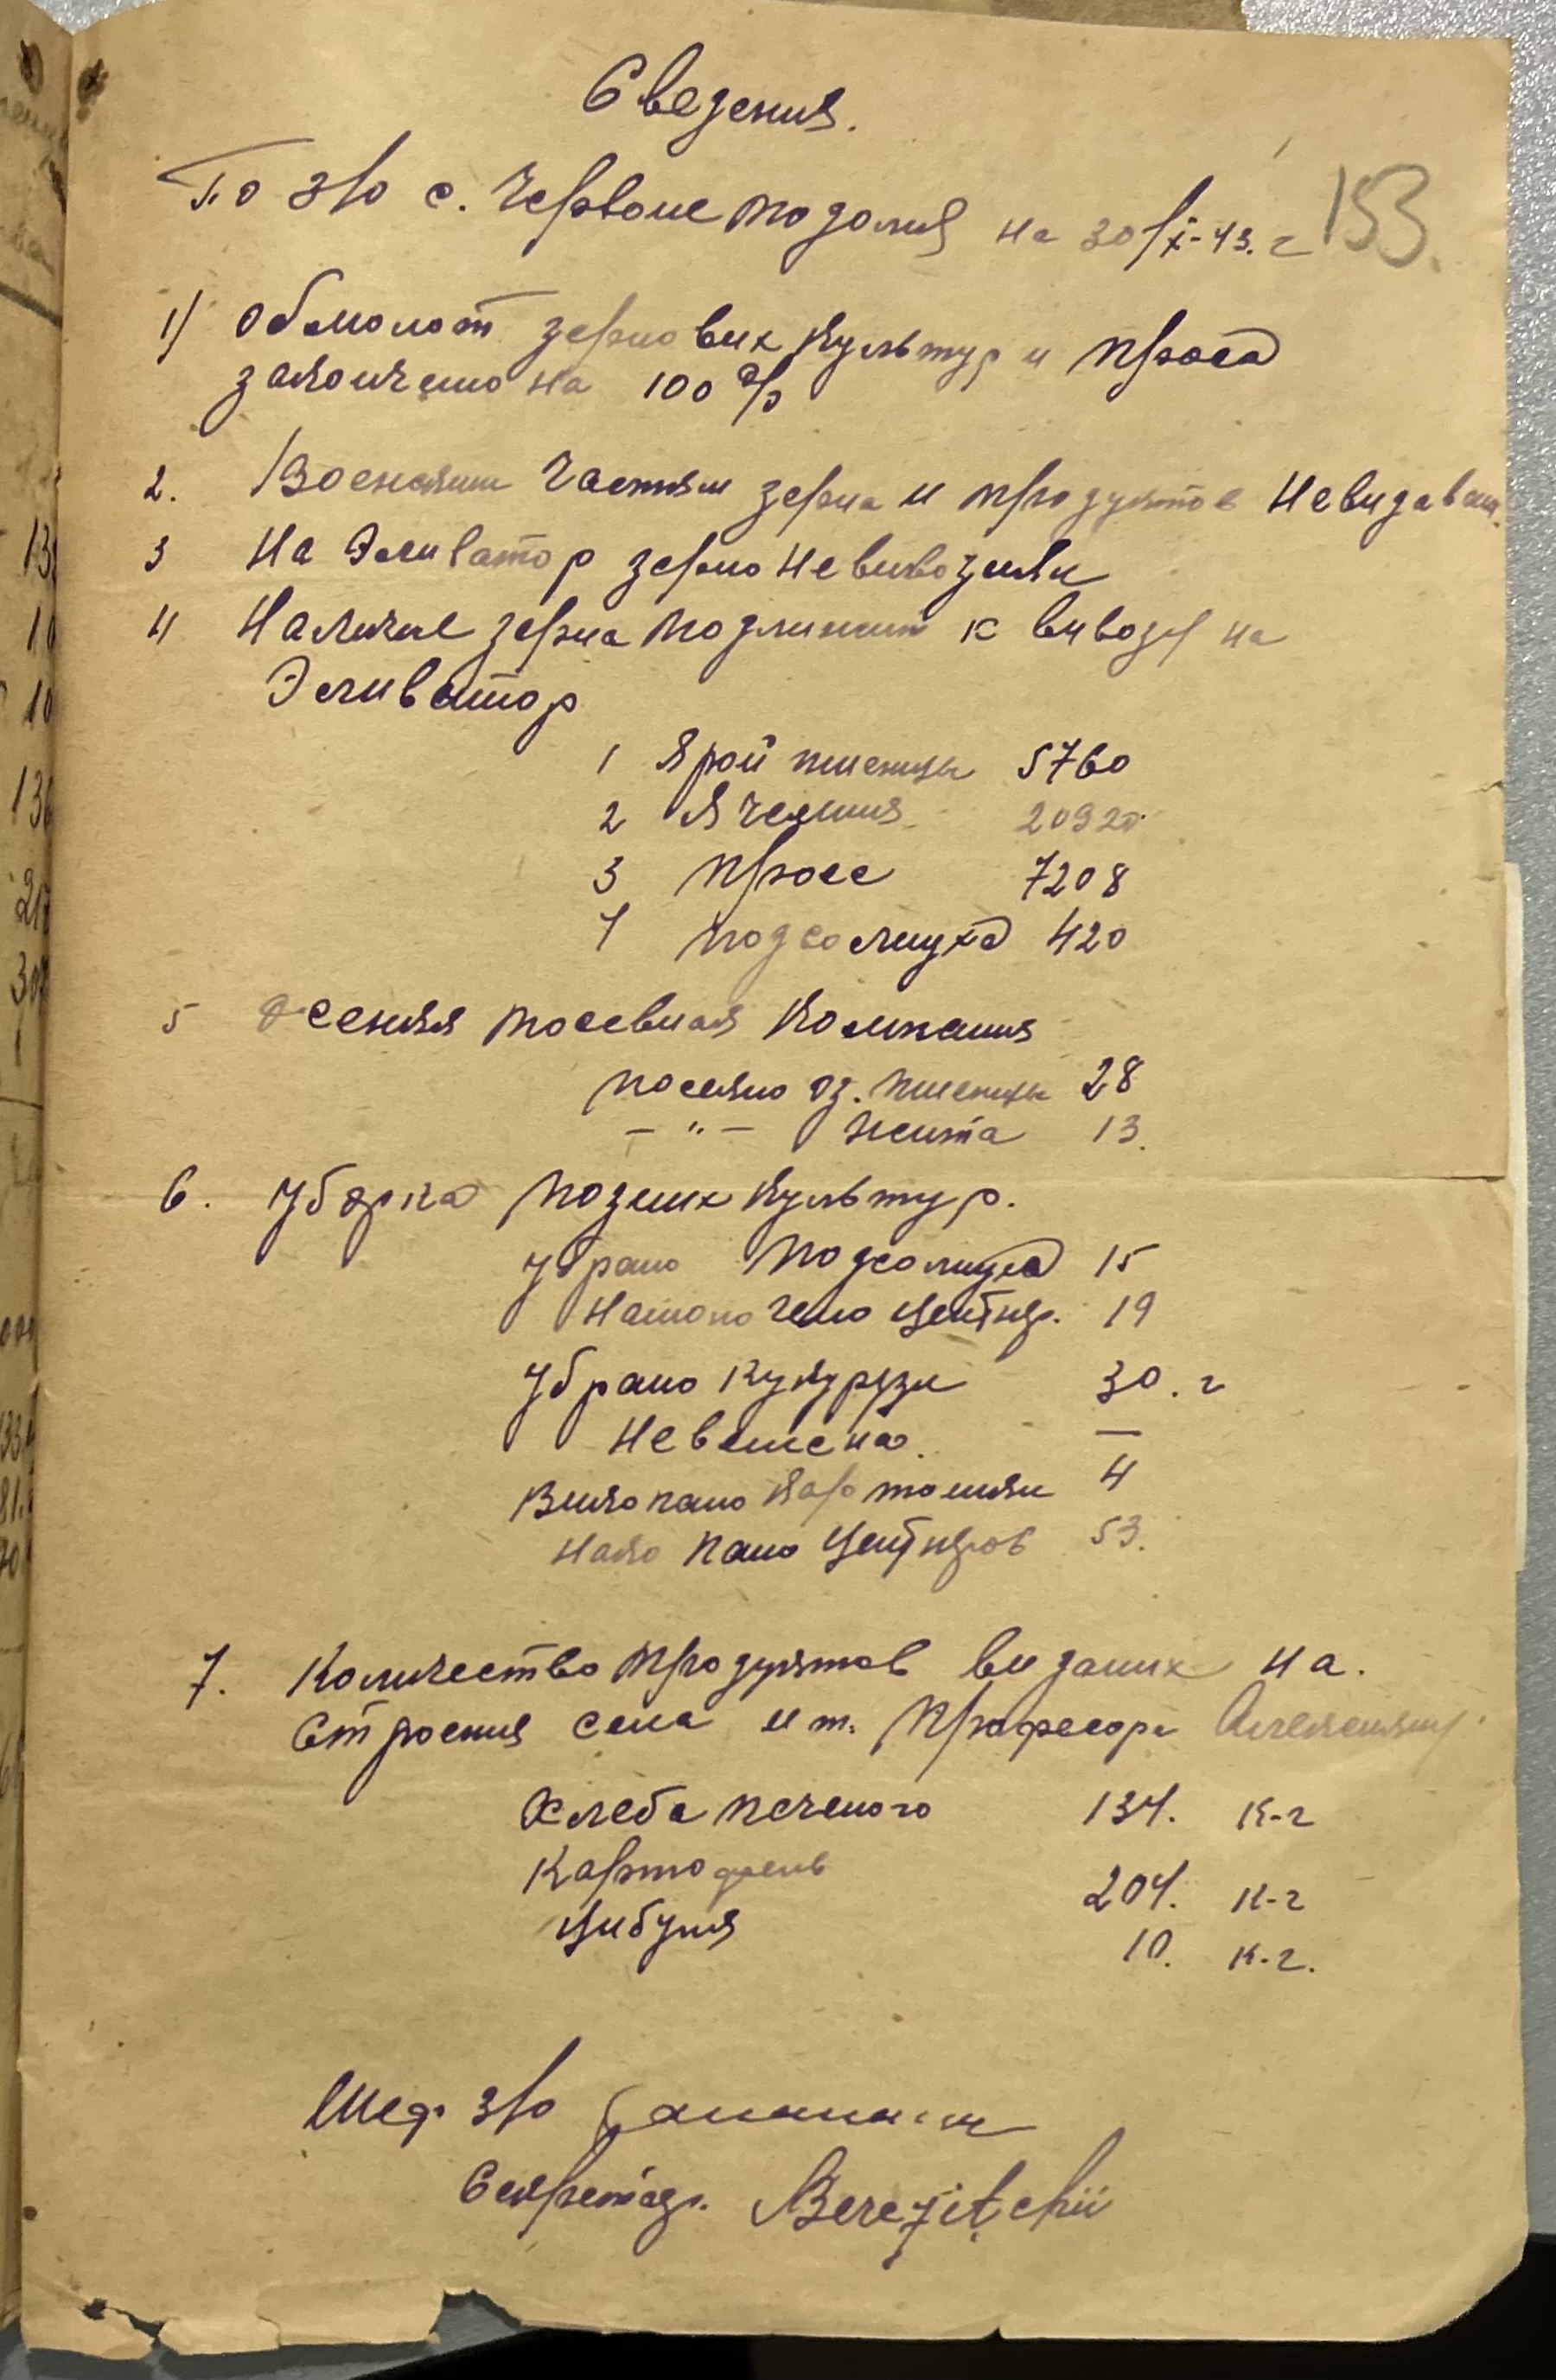 Сведения.
По з/о с. Червоне подолия на 30/X-43. г
153.
1) Обмолот зернових культур и проса
закончено на 100 %
2. Военским Частям зерна и продуктов невидавали.
3 На Эливатор зерно невивозили
4 Наличие зерна подлижит к вивозу на
Эливатор
1 Ярой пшеницы 5760
2 Ячменя 20920
3 просо 7208
4 подсолнуха 420
5 Осенняя посевная компания
посеяно оз. пшеницы 28
— " — жита 13.
6. Уборка позних культур.
Убрано подсолнуха 15
намолочено центнр. 19
Убрано кукурузи 30. г
невешена. —
Викопано картошки 4
накопано центнеров 53.
7. Количество продуктов виданих на.
строения села им. Профессора
Хлеба печеного 134. к-г
Картофель 204. к-г
Цибуля 10. к-г.
Шеф. з/о
Секретар. Berezitchii